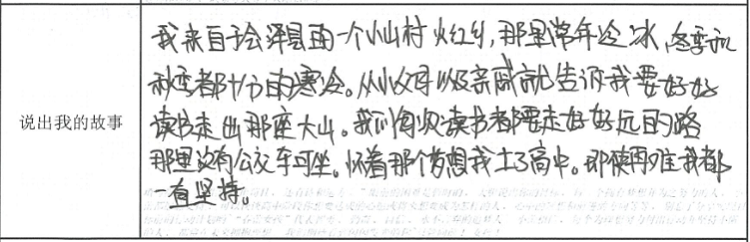 说出我的故事
我来自于会泽县的一个小山村火红乡,那里常年冷冰,冬季和
秋季都十分的寒冷。从小父母以及亲戚就告诉我要好好
读书走出那座大山。我们每次读书都要走好好远的路
那里没有公交车可坐。怀着那个梦想我上了高中。即使再难我都
一直坚持。